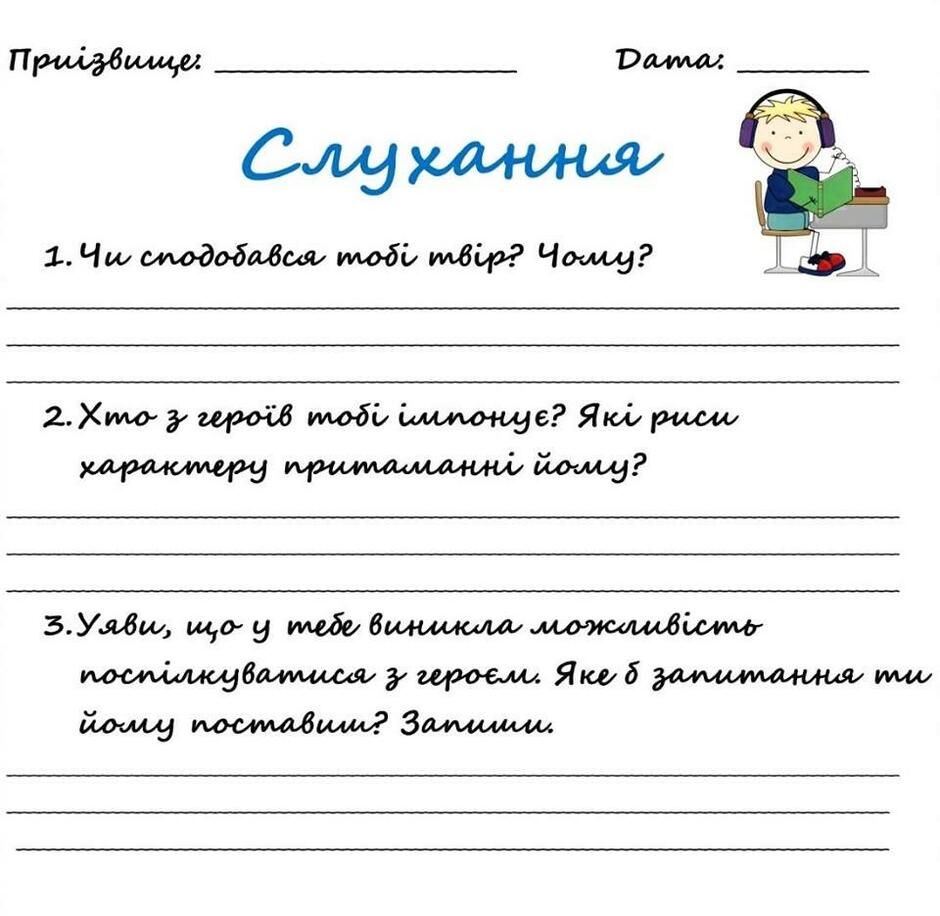 Приізвище: ____________________ Дата: _________
Слухання
1. Чи сподобався тобі твір? Чому?
2. Хто з героїв тобі імпонує? Які риси
характеру притаманні йому?
3. Уяви, що у тебе виникла можливість
поспілкуватися з героєм. Яке б запитання ти
йому поставиш? Запиши.